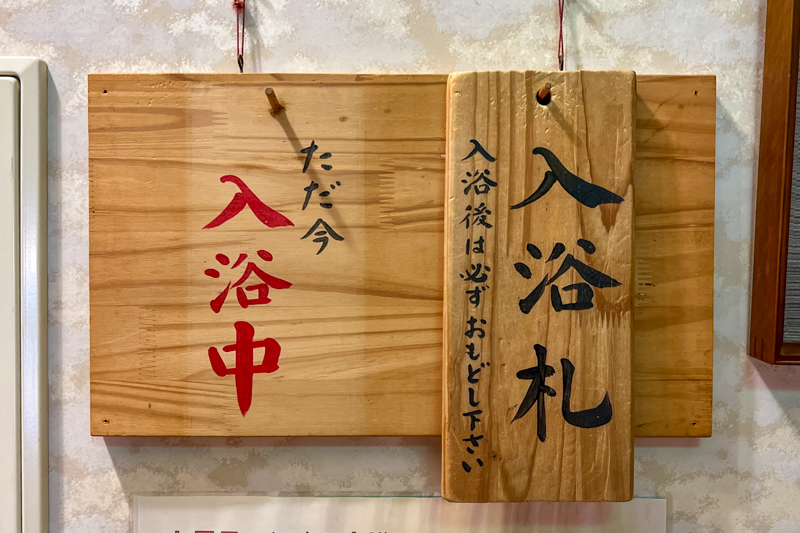 入浴札
入浴後は必ずおもどし下さい
ただ今
入浴中